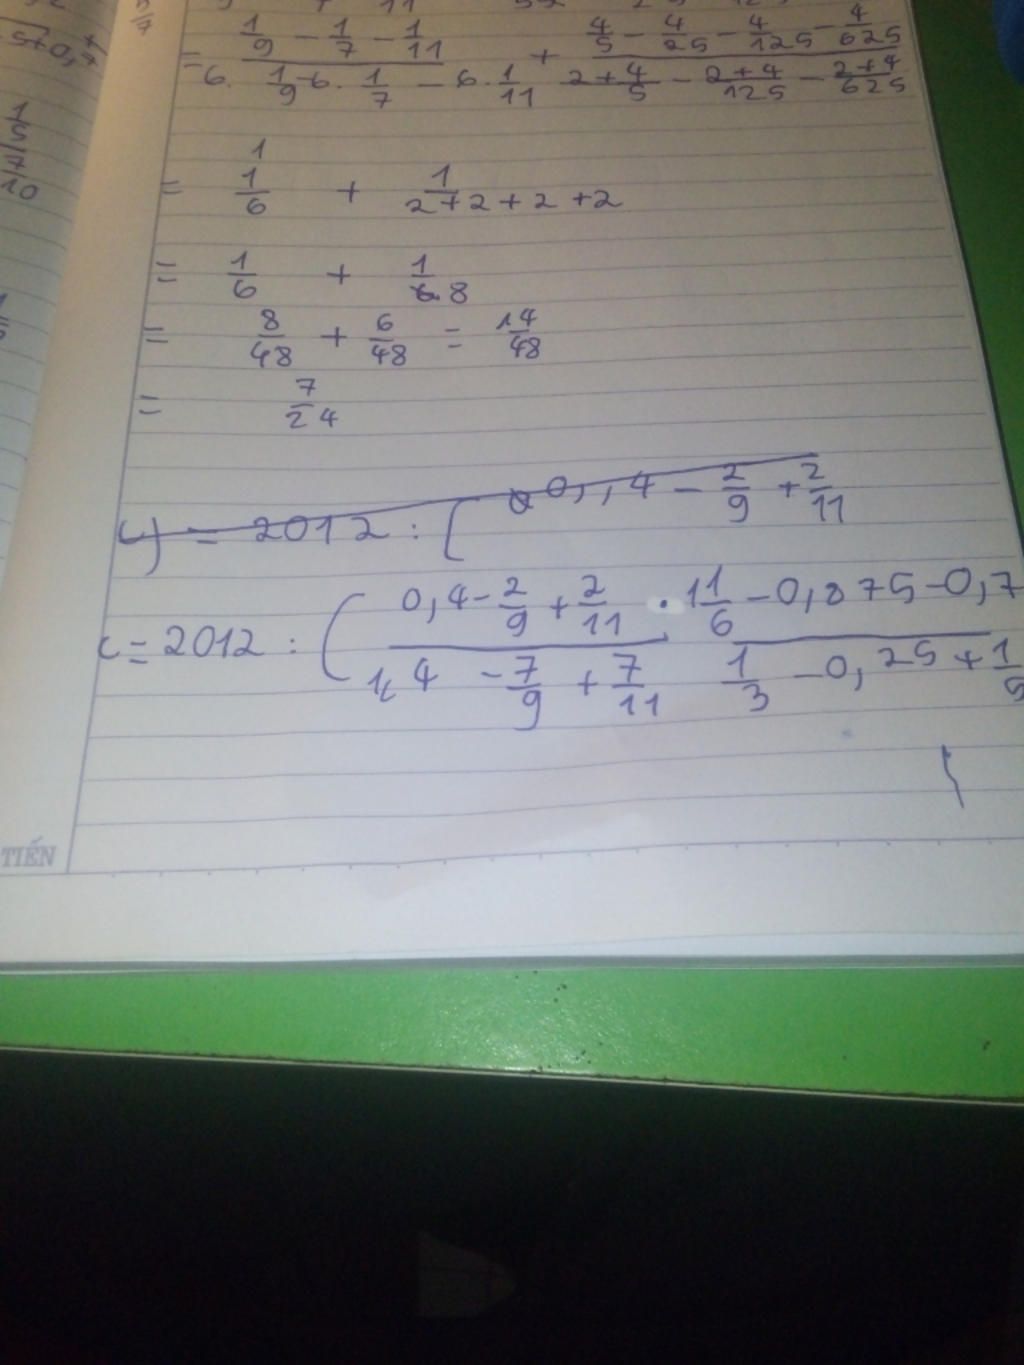 = \frac{\frac{1}{9} - \frac{1}{7} - \frac{1}{11}}{6. \frac{1}{9} - 6. \frac{1}{7} - 6. \frac{1}{11}} + \frac{\frac{4}{5} - \frac{4}{25} - \frac{4}{125} - \frac{4}{625}}{\frac{2+4}{5} - \frac{2+4}{125} - \frac{2+4}{625}}
1
= \frac{1}{6} + \frac{1}{2+2+2+2}
= \frac{1}{6} + \frac{1}{8}
= \frac{8}{48} + \frac{6}{48} = \frac{14}{48}
= \frac{7}{24}
c) = 2012 : ( 0,4 - \frac{2}{9} + \frac{2}{11}
c = 2012 : ( \frac{0,4 - \frac{2}{9} + \frac{2}{11}}{1,4 - \frac{7}{9} + \frac{7}{11}} . \frac{1\frac{1}{6} - 0,875 - 0,7}{\frac{1}{3} - 0,25 + \frac{1}{5}}
TIẾN